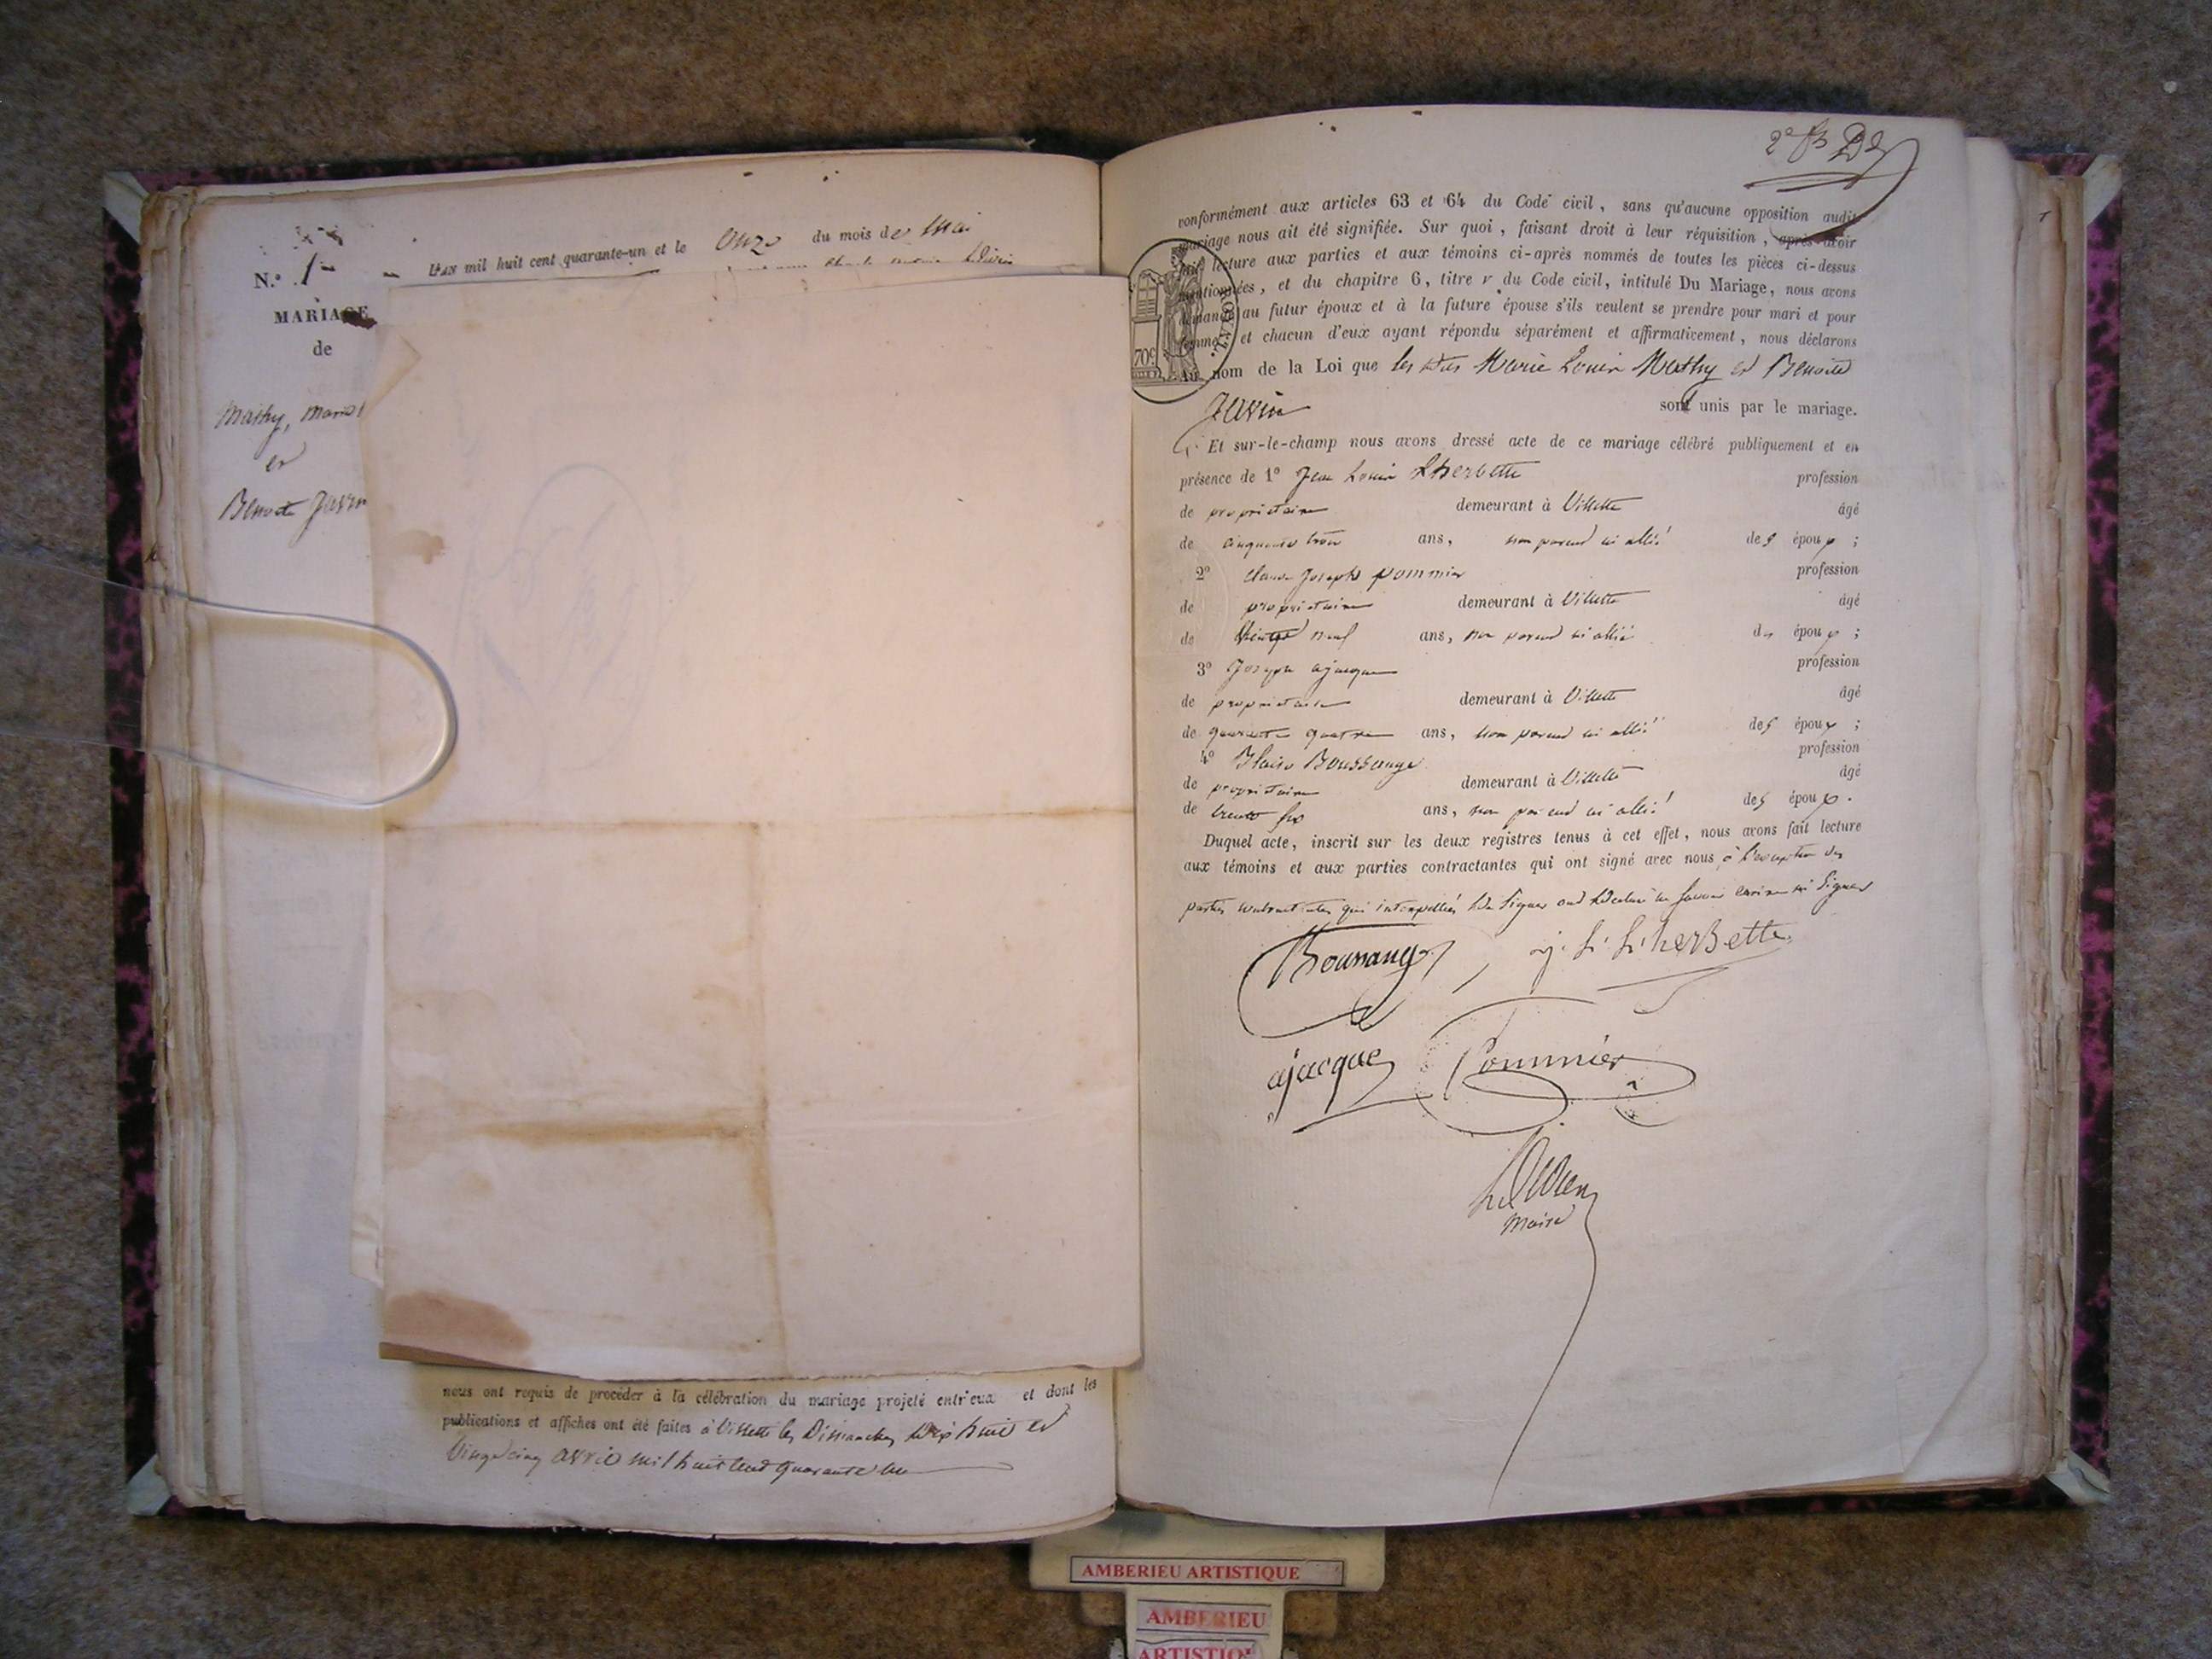 N.º 1
MARIAGE
de
Mathy, Marie
et
Benoite Javin
L'an mil huit cent quarante-un et le Onze du mois de Mai
nous ont requis de procéder à la célébration du mariage projeté entr'eux et dont les
publications et affiches ont été faites à Villette les Dimanches dix huit et
vingt cinq avril mil huit cent quarante un
conformément aux articles 63 et 64 du Code civil, sans qu'aucune opposition audit
mariage nous ait été signifiée. Sur quoi, faisant droit à leur réquisition, après avoir
fait lecture aux parties et aux témoins ci-après nommés de toutes les pièces ci-dessus
mentionnées, et du chapitre 6, titre v du Code civil, intitulé Du Mariage, nous avons
demandé au futur époux et à la future épouse s'ils veulent se prendre pour mari et pour
femme, et chacun d'eux ayant répondu séparément et affirmativement, nous déclarons
Au nom de la Loi que les Marie Louis Mathy et Benoite
Javin sont unis par le mariage.
Et sur-le-champ nous avons dressé acte de ce mariage célébré publiquement et en
présence de 1º Jean Louis Lherbette profession
de propriétaire demeurant à Villette âgé
de cinquante trois ans, non parent ni allié des époux ;
2º Claude Joseph Pommier profession
de propriétaire demeurant à Villette âgé
de neuf ans, non parent ni allié des époux ;
3º Joseph ajacque profession
de propriétaire demeurant à Villette âgé
de quarante quatre ans, non parent ni allié des époux ;
4º Blaise Boussange profession
de propriétaire demeurant à Villette âgé
de trente six ans, non parent ni allié des époux.
Duquel acte, inscrit sur les deux registres tenus à cet effet, nous avons fait lecture
aux témoins et aux parties contractantes qui ont signé avec nous à l'exception des
parties contractantes qui interpellées de signer ont déclaré ne savoir écrire ni signer
Boussange j. L. Lherbette
ajacque Pommier
Maire
70c
ROYAL
AMBERIEU ARTISTIQUE
AMBERIEU